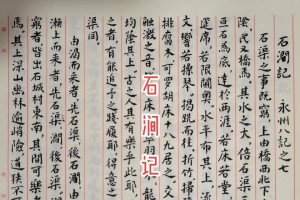 石澗記
永州八记之七
石渠之事既窮，上由橋西北下
除民又橋焉。其水之大，倍石渠三
亘石為底，達於兩涯。若床若堂，
筵席，若限閫奧。水平布其上，流
文，響若操琴。揭跣而往，折竹掃
排腐木，可羅胡床十八九居之。交
觸激之音，床 羽之木，龍
均蔭其上。古之人其有樂乎此耶
之者，有能追予之踐履耶？得意之
渠同。
由渴而來者，先石渠，後石澗；由
瀨上而來者，先石澗，後石渠。澗
窮者，皆出石城村東南，其間可樂者
焉。其上深山幽林逾峭險，道狹不可
石涧记